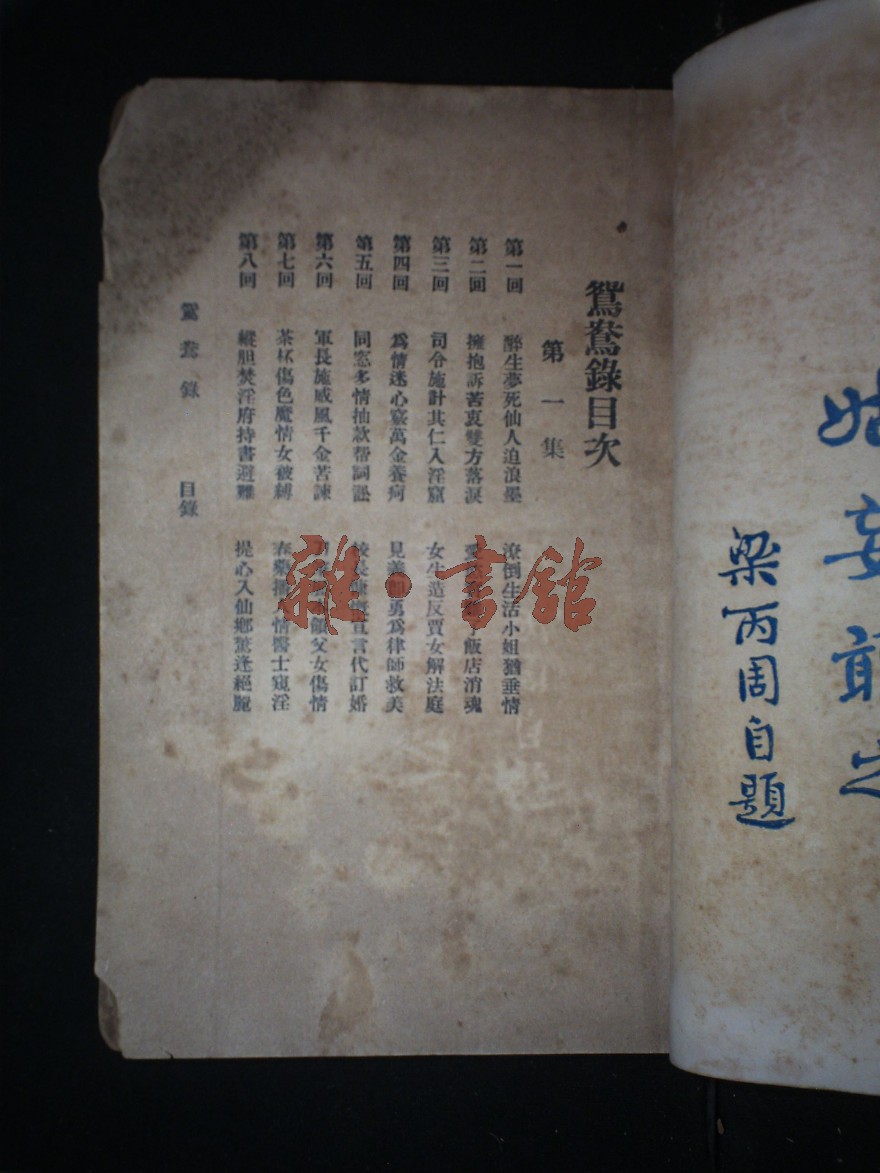 姑妄
梁丙周自題
鴛鴦錄目次
第一集
第一回 醉生夢死仙人追浪墨 潦倒生活小姐猶垂情
第二回 擁抱訴苦衷雙方落淚 飯店消魂
第三回 司令施計其仁入淫窟 女生造反賈女解法庭
第四回 爲情迷心竅萬金養疴 見義勇爲律師救美
第五回 同窓多情抽款帮詞訟 校長宣言代訂婚
第六回 軍長施威風千金苦諫 父女傷情
第七回 茶杯傷色魔情女被縛 情醫士窺淫
第八回 縱胆焚淫府持書避難 提心入仙鄉驚逢絕麗
鴛鴦錄 目錄
雜·書館